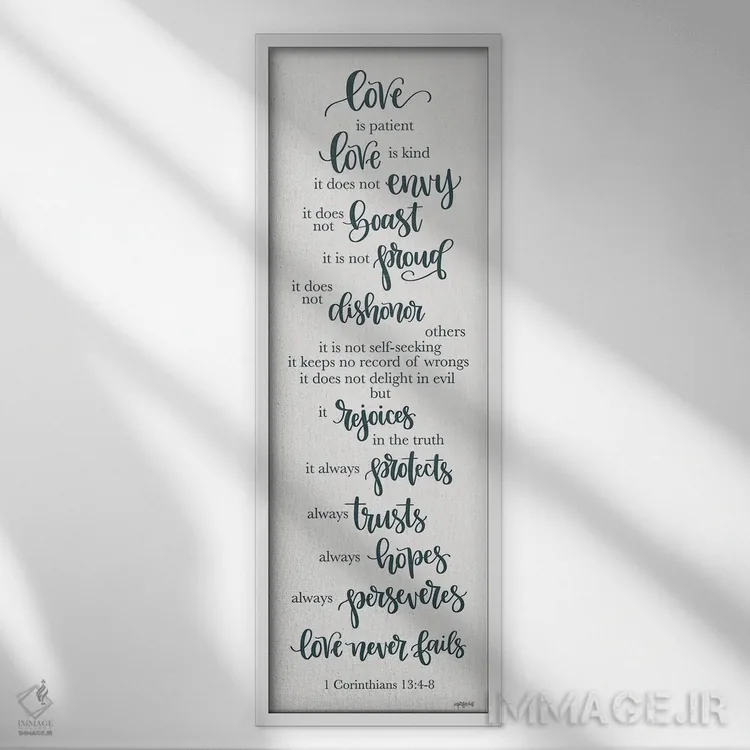 love
is patient
love is kind
it does not envy
it does
not boast
it is not proud
it does
not dishonor
others
it is not self-seeking
it keeps no record of wrongs
it does not delight in evil
but
it rejoices
in the truth
it always protects
always trusts
always hopes
always perseveres
love never fails
1 Corinthians 13:4-8
IMMAGE
IMMAGE.IR
IMMAGE.IR